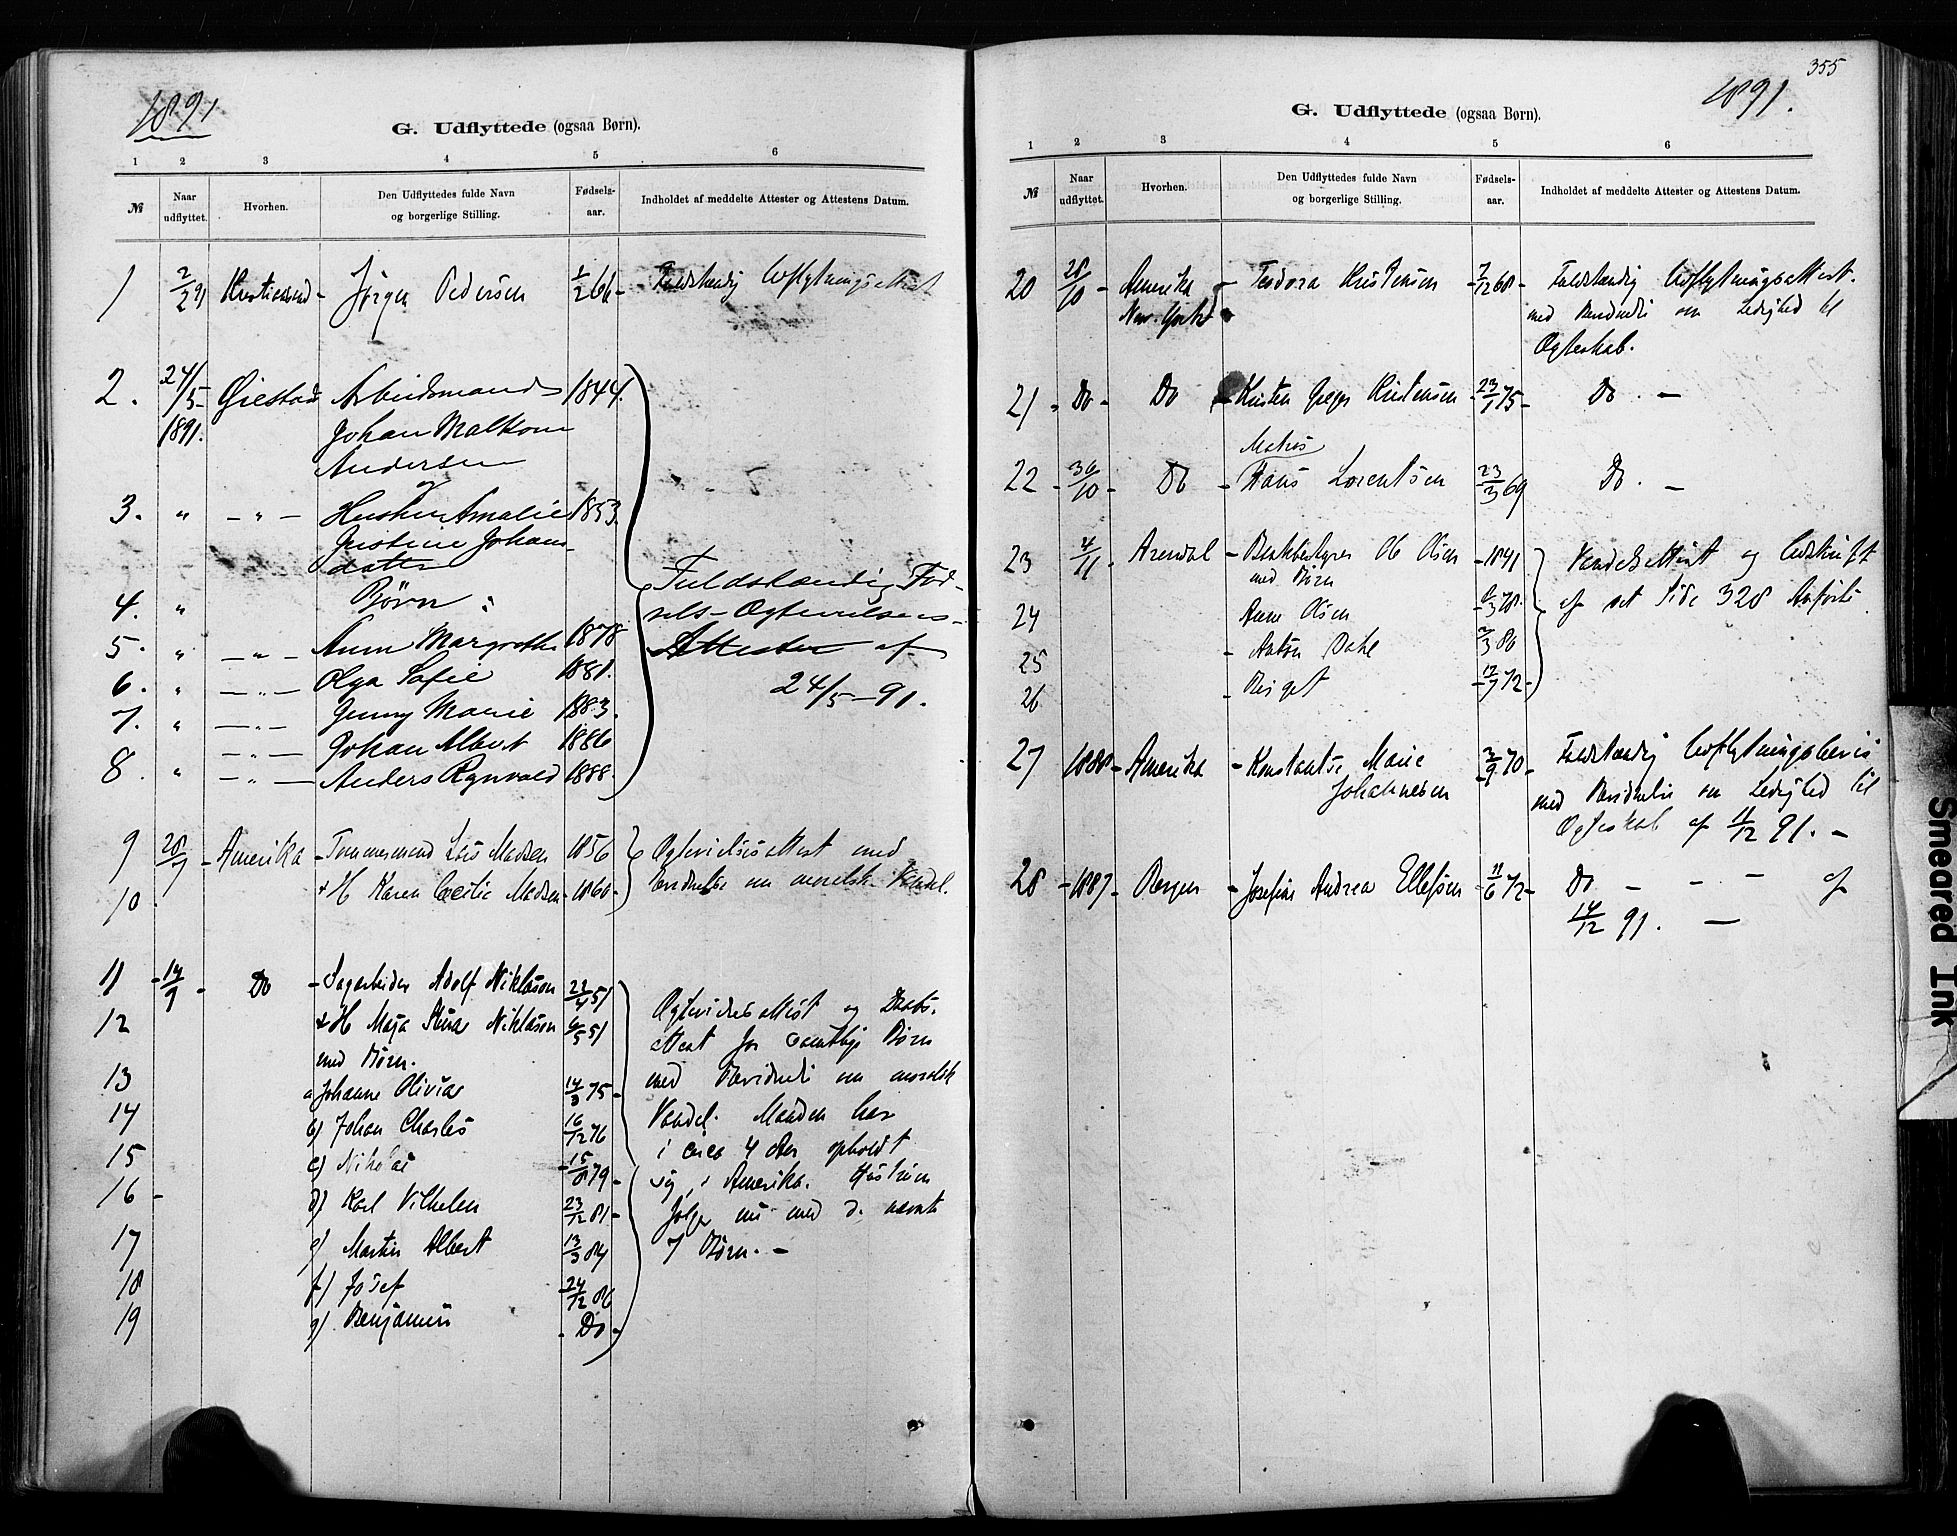 1891
G. Udflyttede (ogsaa Børn).
1 2 3 4 5 6
№ Naar udflyttet. Hvorhen. Den Udflyttedes fulde Navn og borgerlige Stilling. Fødselsaar. Indholdet af meddelte Attester og Attestens Datum.
1 2/2 91 Jørgen Pedersen 1/2 66 Fuldstændig Udflytningsattest
2. 24/5 Øiestad Arbeidsmand 1844.
1891. Johan Malkom
Andersen
og
3. " - " - Hustru Amalie 1853.
Justine Johans-
datter
4. " Børn :
5. " - " - Anne Margrethe 1878
6. " - " - Olga Sofie 1881.
7. " - " - Jenny Marie 1883.
- " - Johan Albert 1886
8. " - " - Anders Rynvald 1888.
Fuldstændig Fød-
sels-Ogtevielses-
Attester af
24/5-91.
9 28/7 - Amerika - Tømmermand Lars Madsen 1856 Ogtevielsesattest med
10. + H Karen Cecilie Madsen - 1860 - om moralsk Vandel.
11 - 14/9 - Do - Sagarbeider Adolf Niklasson 22/4 51
12 + H Maja Stina Niklason 6/5 51
med Børn.
13 a Johanne Olivia 14/3 75 -
14 b) Johan Charles 16/12 76
15 c) Nikolai 15/8 79 -
16 - d) Karl Vilhelm 23/12 81 -
17 e) Martin Albert 13/3 84
18 f) Josef 24/12 86
19 g) Benjamin - Do -
Ogtevielsesattest og Daabs-
attest for samtlige Børn
med Bevidnelse om moralsk
Vandel. Manden har
i circa 4 Aar opholdt
sig i Amerika. Hustruen
følger nu med de nævnte
7 Børn. -
355
1891.
G. Udflyttede (ogsaa Børn).
1 2 3 4 5 6
№ Naar udflyttet. Hvorhen. Den Udflyttedes fulde Navn og borgerlige Stilling. Fødselsaar. Indholdet af meddelte Attester og Attestens Datum.
20 28/10 - Amerika - Teodora Kristensen - 7/12 68 - Fuldstændig Udflytningsattest.
med Bevidnelse om Ledighed til
Ogteskab.
21 - Do - Do Kristen Kristensen - 23/1 75 - Do. -
Matros
22 - 30/10 - Do - Hans Lorentsen 23/3 69 Do. -
23 4/11 Arendal - Ole Olsen - 1841
med Børn
24 Anne Olsen 78
25 - Anton Dahl 80
26 - Birget 72 -
Vandelsattest og Udskrift
af det Side 328 Anførte.
27 1888 - Amerika - Konstantse Marie 3/9 70 - Fuldstændig Udflytningsbevis
Johannesen med Bevidnelse om Ledighed til
Ogteskab af 11/12 91. -
28 - 1887 - Bergen - Josefine Andrea Ellefsen - 11/6 72 - Do - - - af
14/12 91. -
Smeared Ink